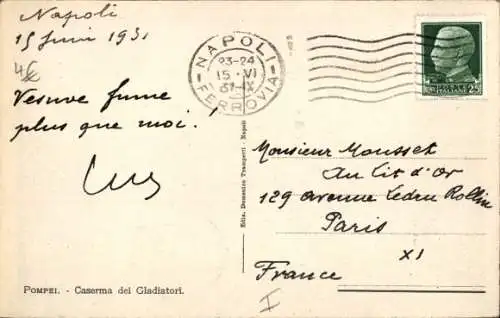 Napoli
15 Juin 1931
Vesuve fume
plus que moi.
NAPOLI
23-24
15·VI
31-IX
FERROVIA
Monsieur Mousset
Au Lit d'or
129 avenue Ledru Rollin
Paris
XI
France
I
Ediz. Domenico Trampetti - Napoli
POMPEI. - Caserma dei Gladiatori.